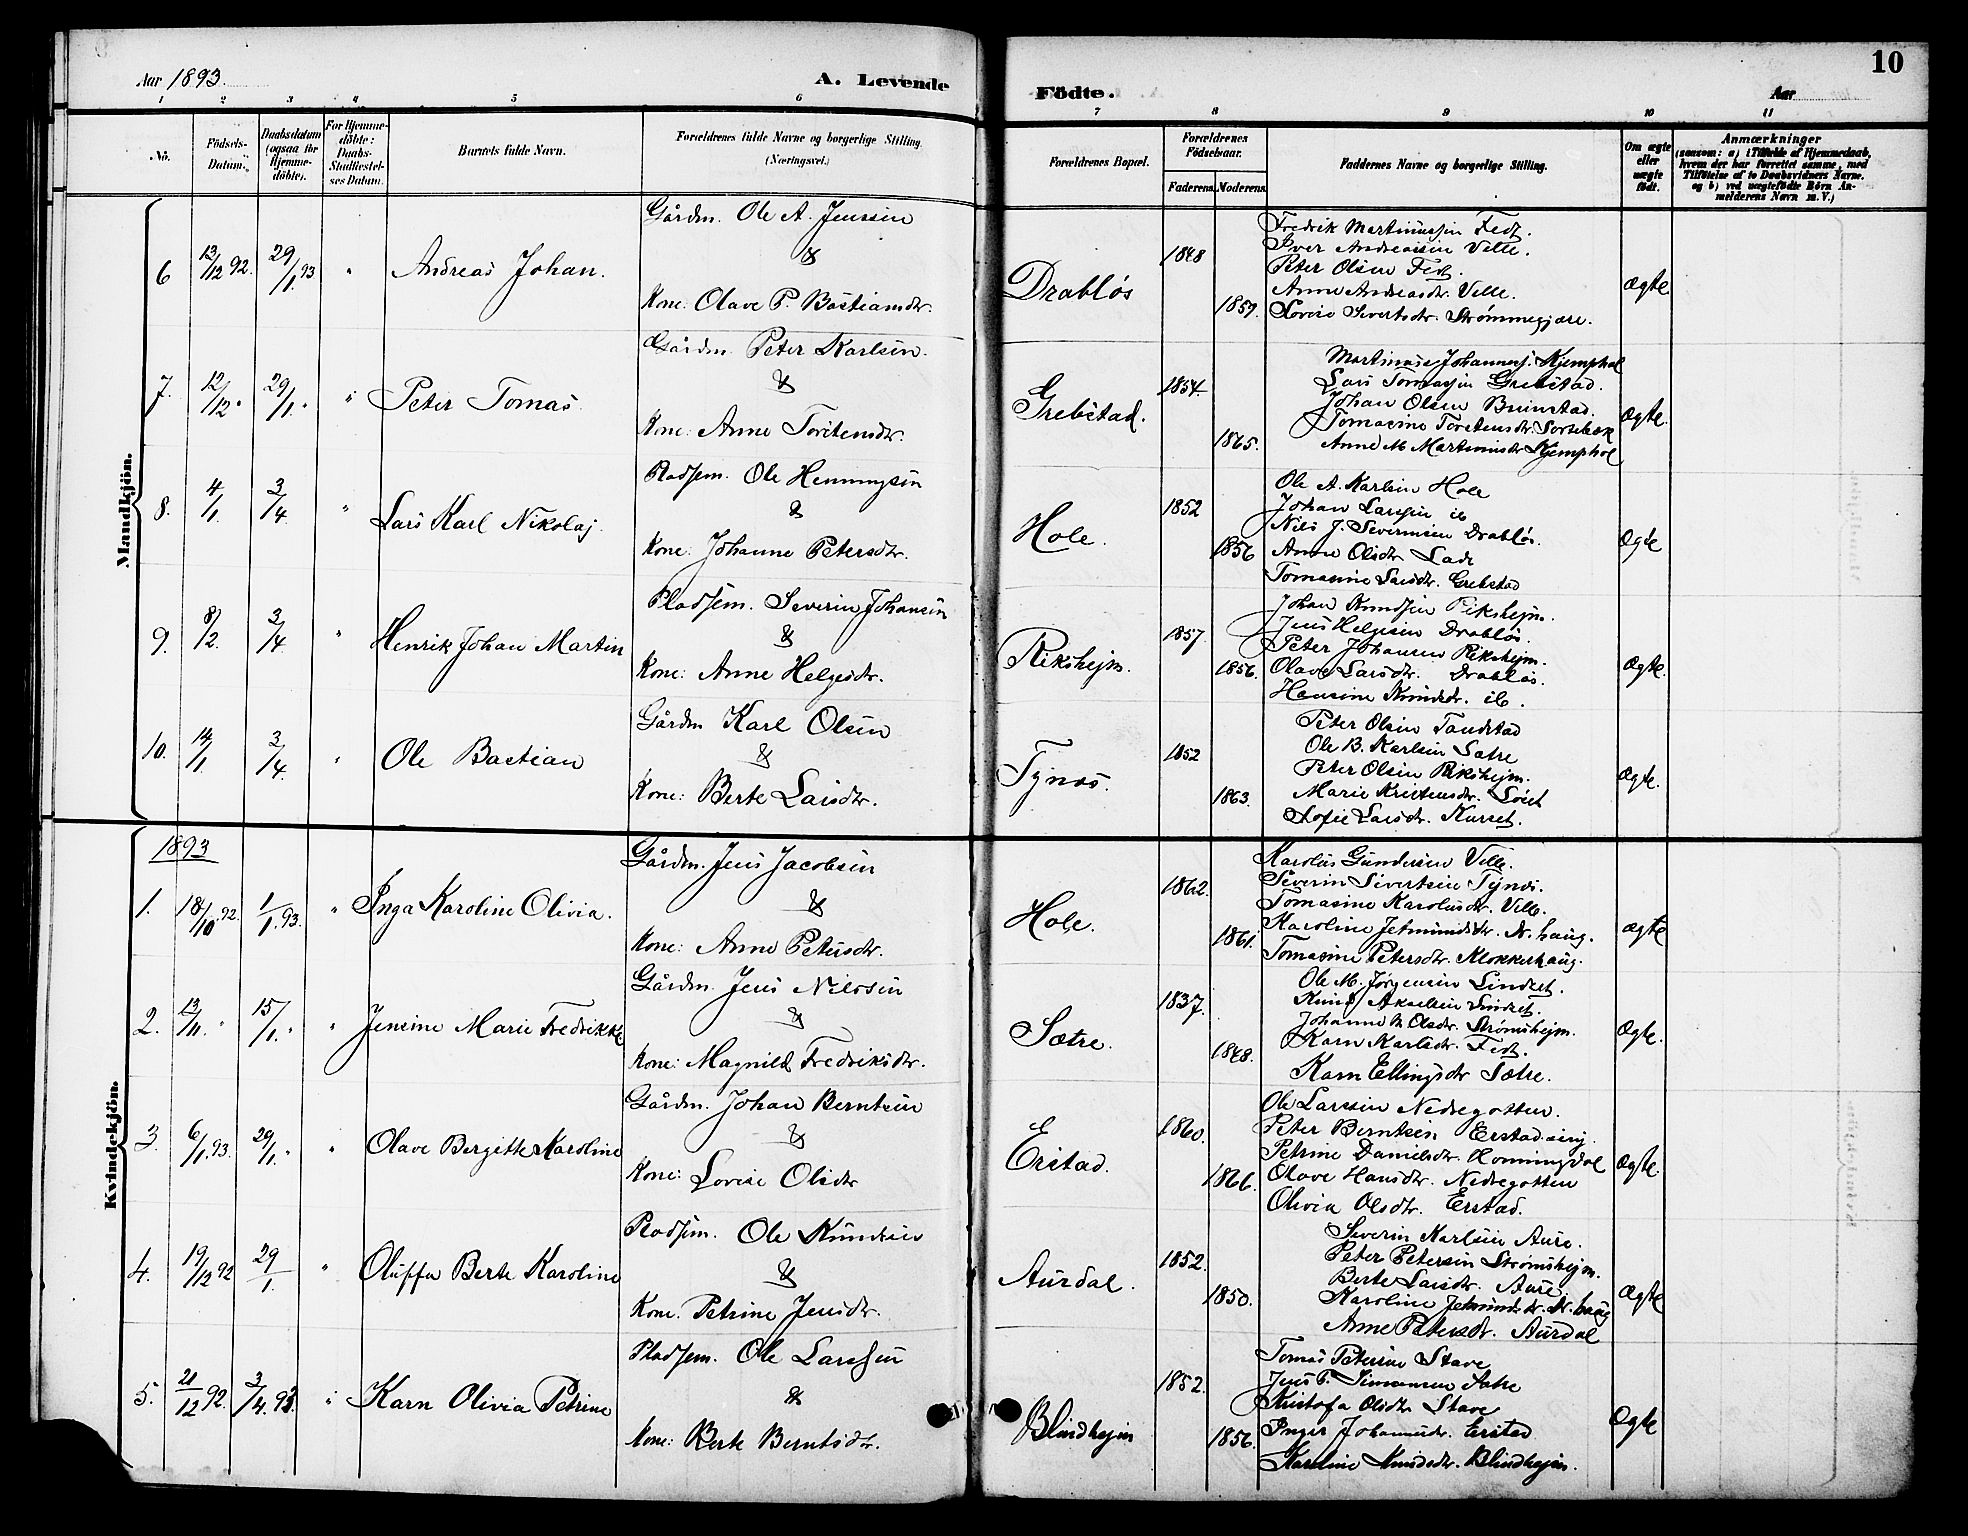 Aar 1893.
A. Levende
Födte.
Aar
10
1 2 3 4 5 6 7 8 9 10 11
No.
Födsels-Datum.
Daabsdatum (ogsaa for Hjemmedöbte).
For Hjemmedöbte: Daabs-Stadfæstelses Datum.
Barnets fulde Navn.
Forældrenes fulde Navne og borgerlige Stilling. (Næringsvei.)
Forældrenes Bopæl.
Forældrenes Födselsaar.
Faderens. Moderens.
Faddernes Navne og borgerlige Stilling.
Om ægte eller uægte födt.
Anmærkninger
(saasom: a) i Tilfælde af Hjemmedaab, hvem der har forrettet samme, med Tilföielse af to Daabsvidners Navne. og b) ved uægtefödte Börn Anmelderens Navn m. V.)
Mandkjön.
6 13/12 92. 29/1 93 " Andreas Johan.
Gårdm. Ole A. Jenssen
&
Kone: Olave P. Bastiansdtr.
Drabløs
1848
1859.
Fredrik Martinussen Fedt.
Iver Andreassen Velle.
Peter Olsen Fedt.
Anne Andreasdtr. Velle.
Lovise Sivertsdtr. Strømmegjære.
ægte
7. 12/12 " 29/1 " " Peter Tomas.
Gårdm. Peter Karlsen.
&
Kone: Anne Torstensdtr.
Grebstad.
1854.
1865.
Martinus Johannesj. Kjemphol
Lars Tomassen Grebstad.
Johan Olsen Brunstad.
Tomasine Torstensdtr. Sortebæk
Anne M. Martinusdtr Kjemphol
Ægte.
8. 4/1 3/4 " Lars Karl Nikolaj.
Pladsem. Ole Henningsen
&
Kone: Johanne Petersdtr.
Hole.
1852
1856
Ole A. Karlsen Hole
Johan Larssen ib
Nils J. Severinsen Drabløs.
Anne Olsdtr Lade
Tomasine Larsdtr. Grebstad
Ægte
9. 8/2. 3/4 " Henrik Johan Martin
Pladsem. Severin Johansen
&
Kone: Anne Helgesdtr.
Rikshejm.
1857.
1856.
Johan Knudsen Rikshejm.
Jens Helgesen Drabløs.
Peter Johansen Rikshejm.
Olave Larsdtr. Drabløs.
Hansine Knudsdtr. ib.
Ægte.
10. 14/1. 3/4. " Ole Bastian
Gårdm Karl Olsen
&
Kone: Berte Larsdtr.
Tynes.
1852
1863.
Peter Olsen Tandstad
Ole B. Karlsen Sætre
Peter Olsen Rikshejm.
Marie Kristensdtr. Løset
Sofie Larsdtr. Kurset.
Ægte.
Kvindekjön.
1893
1. 18/10 92. 1/1 93. " Inga Karoline Olivia.
Gårdm. Jens Jacobsen
&
Kone: Anne Petersdtr.
Hole.
1862.
1861.
Karolus Gundersen Velle.
Severin Sivertsen Tynes.
Tomasine Karolusdtr. Velle.
Karoline Jetmundsdtr. N. haug.
Tomasine Petersdtr. Klokkerhaug.
ægte
2. 13/11. " 15/1. " " Jensine Marie Fredrikke
Gårdm. Jens Nilssen
&
Kone: Magnild Fredriksdtr.
Sætre.
1837.
1848.
Ole M. Jørgensen Lindset.
Knud Akselsen Lindset.
Johanne M Olsdtr. Strømshejm.
Karn Karlsdtr. Fedt.
Karn Ellingsdtr Sætre.
Ægte.
3. 6/1 93. 29/1. " " Olave Bergitte Karoline
Gårdm. Johan Berntsen
&
Kone: Lovise Olsdtr
Erstad.
1860.
1866.
Ole Larssen Nedregotten.
Peter Berntsen Erstadeing.
Petrine Danielsdtr. Honningdal
Olave Hansdtr. Nedregotten
Olivia Olsdtr. Erstad.
Ægte.
4. 19/12 92 29/1. " Oluffa Berte Karoline
Pladsem. Ole Knudsen
&
Kone. Petrine Jensdtr.
Aurdal.
1852.
1850.
Severin Karlsen Aure.
Peter Petersen Strømshejm.
Berte Larsdtr. Aure.
Karoline Jetmundsdtr. N. haug
Anne Petersdtr. Aurdal
Ægte
5. 21/12 92. 3/4. 93. " Karn Olivia Petrine
Pladsem. Ole Larssen
&
Kone: Berte Berntsdtr.
Blindhejm
1852.
1856.
Tomas Petersen Stave
Jens P. Simonsen Sætre
Kristofa Olsdtr Stave
Inger Johannesdtr. Erstad
Karoline Knudsdtr. Blindhejm.
Ægte